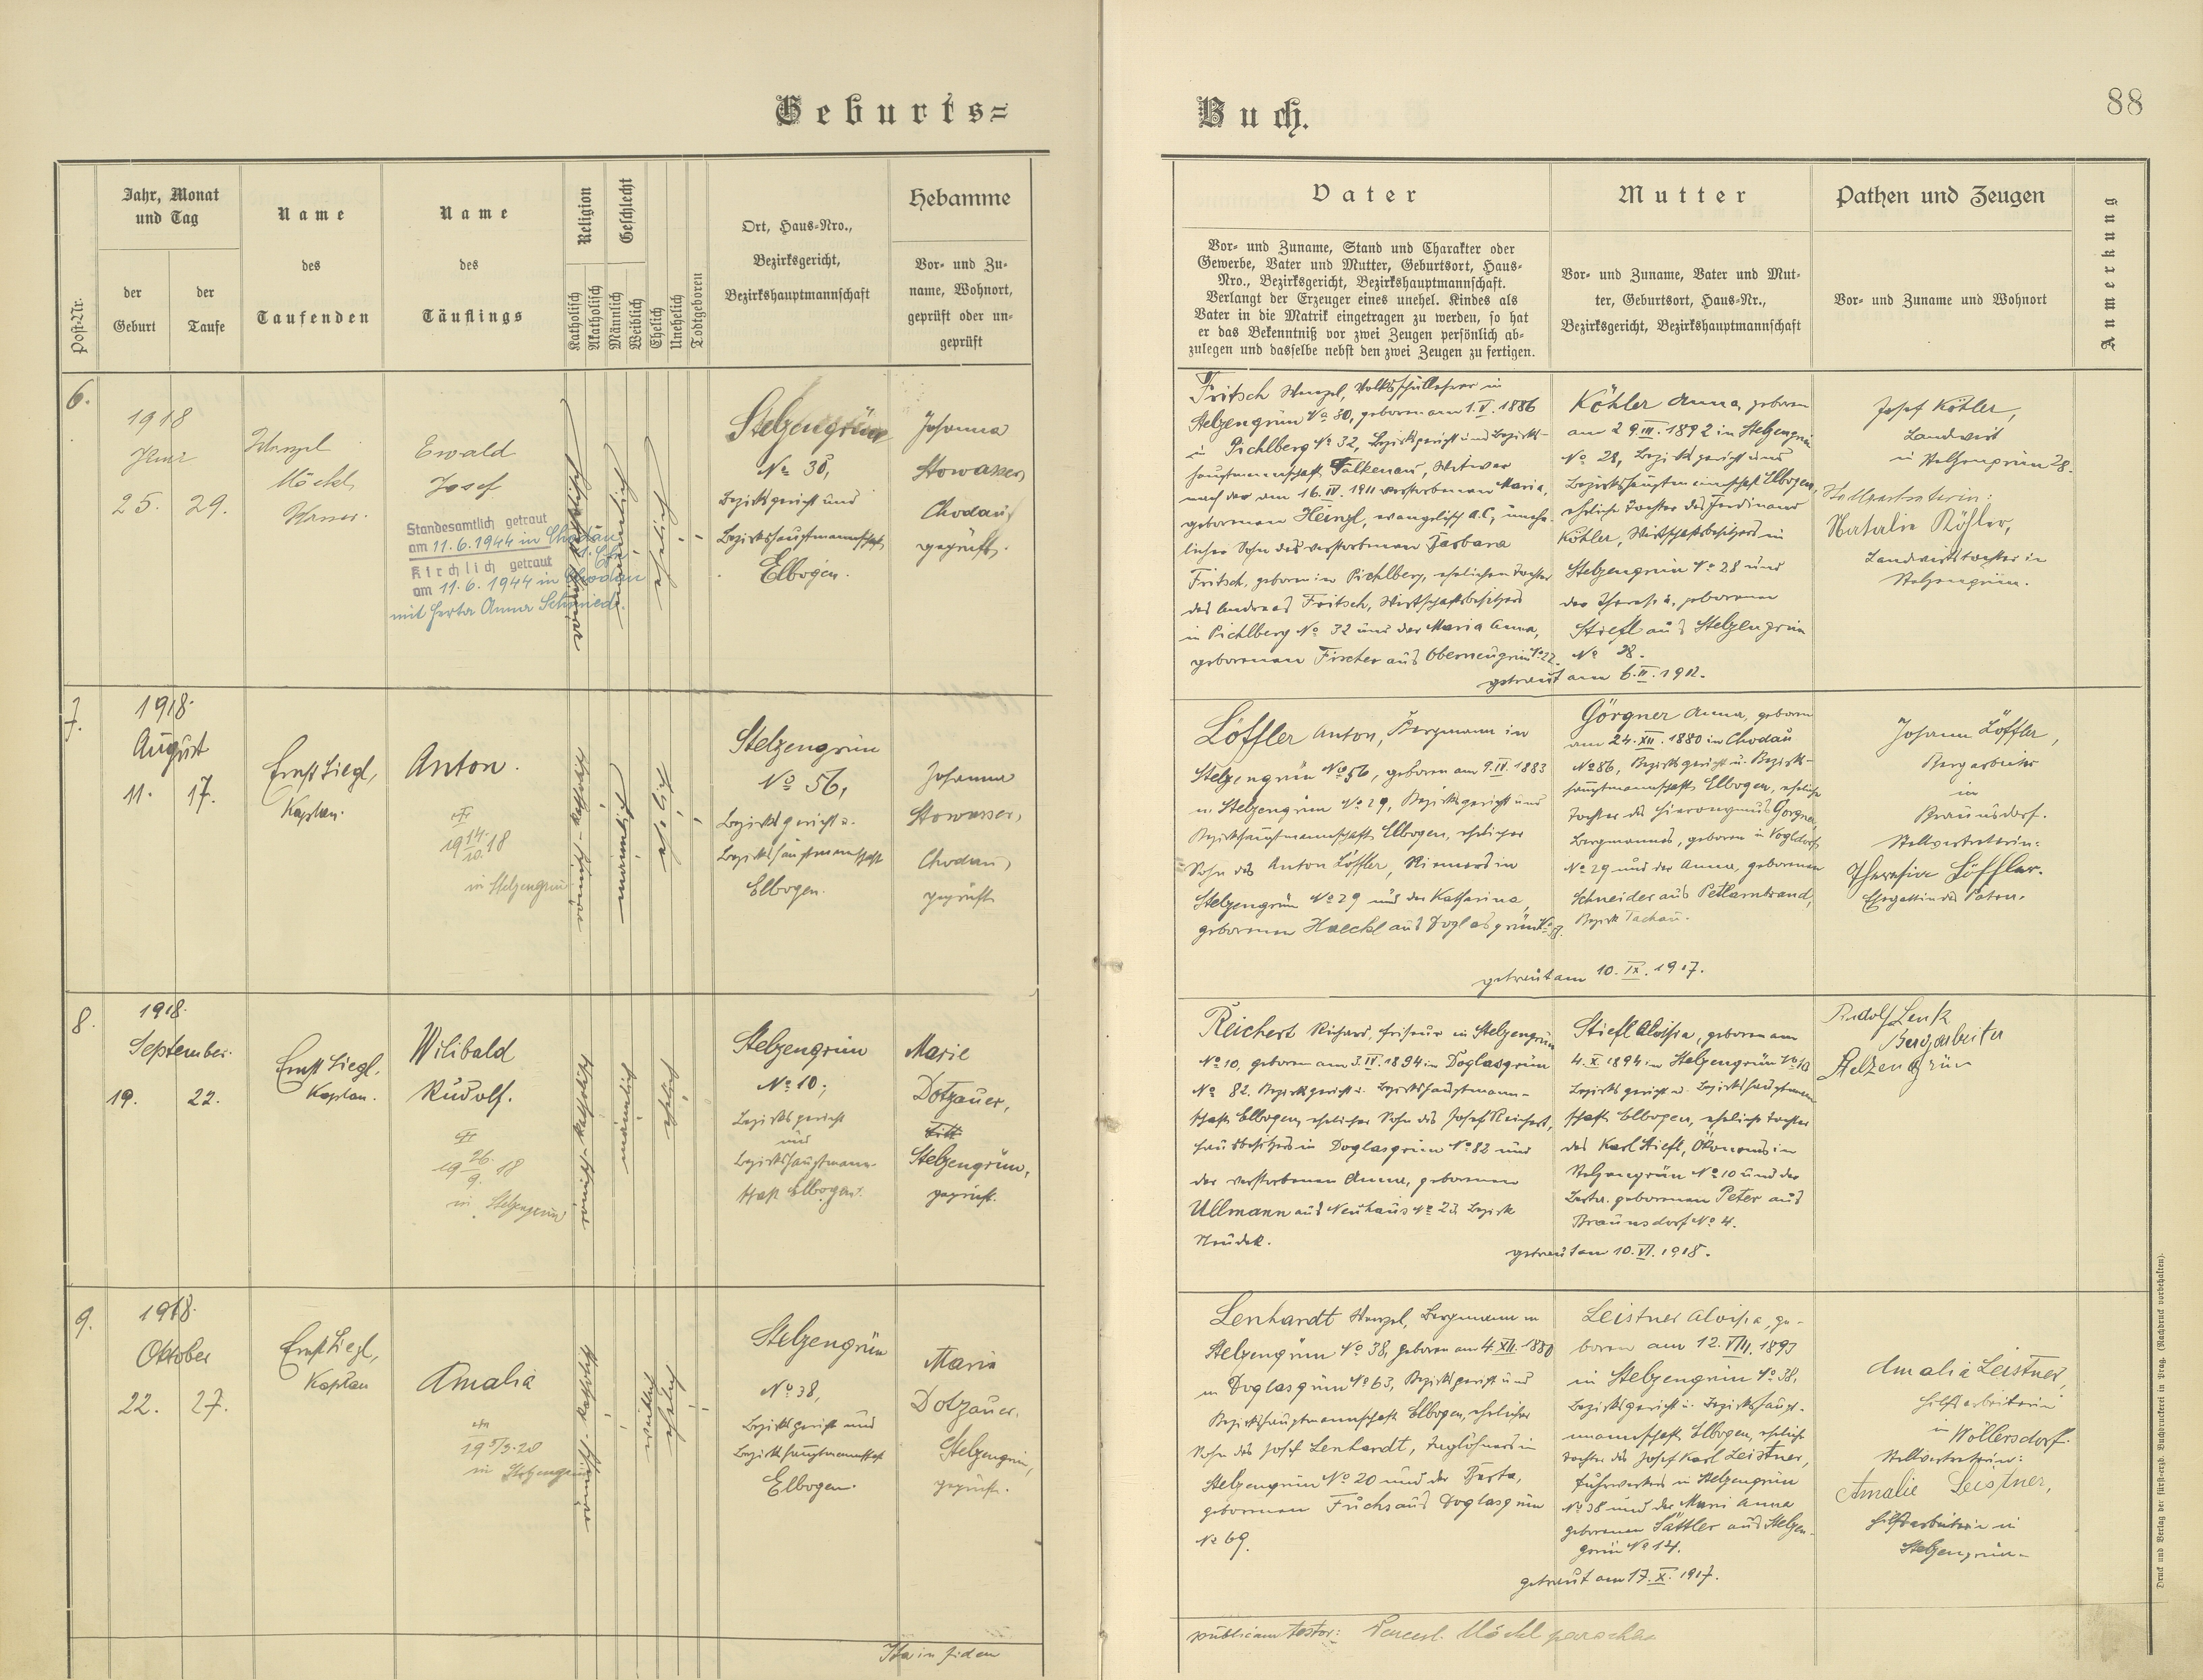 Geburts=
Buch.
88
Post-Nr.
Jahr, Monat
und Tag
der
Geburt
der
Taufe
Name
des
Taufenden
Name
des
Täuflings
Religion
Katholisch
Akatholisch
Geschlecht
Männlich
Weiblich
Ehelich
Unehelich
Todtgeboren
Ort, Haus-Nro.,
Bezirksgericht,
Bezirkshauptmannschaft
Hebamme
Vor- und Zu-
name, Wohnort,
geprüft oder un-
geprüft
Vater
Vor- und Zuname, Stand und Charakter oder
Gewerbe, Vater und Mutter, Geburtsort, Haus-
Nro., Bezirksgericht, Bezirkshauptmannschaft.
Verlangt der Erzeuger eines unehel. Kindes als
Vater in die Matrik eingetragen zu werden, so hat
er das Bekenntniß vor zwei Zeugen persönlich ab-
zulegen und dasselbe nebst den zwei Zeugen zu fertigen.
Mutter
Vor- und Zuname, Vater und Mut-
ter, Geburtsort, Haus-Nr.,
Bezirksgericht, Bezirkshauptmannschaft
Pathen und Zeugen
Vor- und Zuname und Wohnort
Anmerkung
6.
1918
25. 29.
Wenzel
Möckl,
Ewald
Josef
Standesamtlich getraut
am 11.6.1944 in Chodau
Kirchlich getraut
am 11.6.1944 in Chodau
mit Herta Anna Schmied.
römisch-katholisch
männlich
ehelich
Stelzengrün
Bezirksgericht und
Bezirkshauptmannschaft
Elbogen.
Johanna
Stowasser,
Chodau,
geprüft.
Fritsch Wenzel, Volksschullehrer in
Stelzengrün No 30, geboren am 1.V.1886
in Pichlberg No 32, Bezirksgericht und Bezirks-
hauptmannschaft Falkenau, Witwer
nach der am 16.IV.1911 verstorbenen Maria,
geborenen Heinzl, evangelisch A.C., unehe-
licher Sohn der verstorbenen Barbara
Fritsch, geboren in Pichlberg, ehelichen Tochter
des Andreas Fritsch, Wirtschaftsbesitzers
in Pichlberg No 32 und der Maria Anna,
geborenen Fischer aus Oberneugrün No 22.
Köhler Anna, geboren
am 29.III.1892 in Stelzengrün
No 28, Bezirksgericht und
Bezirkshauptmannschaft Elbogen,
eheliche Tochter des Ferdinand
Köhler, Wirtschaftsbesitzers in
Stelzengrün No 28 und
der Theresia, geborenen
Stiefl aus Stelzengrün
No 28.
getraut am 6.II.1912.
Josef Köhler,
Landwirt
in Stelzengrün 28.
Stellvertreterin:
Natalie Köhler,
Landwirtstochter in
Stelzengrün.
7.
1918.
August
11. 17.
Ernst Liegl,
Kaplan.
Anton.
19 14./10. 18
in Stelzengrün
römisch-katholisch
männlich
ehelich
Stelzengrün
No 56,
Bezirksgericht u.
Bezirkshauptmannschaft
Elbogen.
Johanna
Stowasser,
Chodau,
geprüft.
Löffler Anton, Bergmann in
Stelzengrün No 56, geboren am 9.IV.1883
in Stelzengrün No 29, Bezirksgericht und
Bezirkshauptmannschaft Elbogen, ehelicher
Sohn des Anton Löffler, Riemers in
Stelzengrün No 29 und der Katharina,
geborenen Haeckl aus Doglasgrün
Görgner Anna, geboren
am 24.XII.1880 in Chodau
No 86, Bezirksgericht u. Bezirks-
hauptmannschaft Elbogen, eheliche
Tochter des Hieronymus Görgner,
Bergmannes, geboren in Vogldorf
No 29 und der Anna, geborenen
Schneider aus Petlarnbrand,
Bezirk Tachau.
getraut am 10.IX.1917.
Johann Löffler,
Bergarbeiter
in
Braunsdorf.
Stellvertreterin:
Theresia Löffler.
Ehegattin des Paten.
8.
1918.
September.
19. 22.
Ernst Liegl,
Kaplan.
Wilibald
Rudolf.
19 26./9. 18
in Stelzengrün
römisch-katholisch
männlich
ehelich
Stelzengrün
No 10,
Bezirksgericht
und
Bezirkshauptmann-
schaft Elbogen.
Marie
Dotzauer,
Stelzengrün,
geprüft.
Reichert Richard, Friseur in Stelzengrün
No 10, geboren am 3.IV.1894 in Doglasgrün
No 82. Bezirksgericht u. Bezirkshauptmann-
schaft Elbogen, ehelicher Sohn des Josef Reichert,
Hausbesitzers in Doglasgrün No 82 und
der verstorbenen Anna, geborenen
Ullmann aus Neuhaus No 23 Bezirk
Neudek.
Stiefl Aloisia, geboren am
4.X.1894 in Stelzengrün No 10
Bezirksgericht u. Bezirkshauptmann
schaft Elbogen, eheliche Tochter
des Karl Stiefl, Ökonoms in
Stelzengrün No 10 und der
geborenen Peter aus
Braunsdorf No 4.
getraut am 10.VI.1918.
Rudolf Lenk
Bergarbeiter
Stelzengrün
9.
1918.
Oktober
22. 27.
Ernst Liegl,
Kaplan
Amalia
19 5/3. 20
in Stelzengrün
römisch-katholisch
weiblich
ehelich
Stelzengrün
No 38,
Bezirksgericht und
Bezirkshauptmannschaft
Elbogen.
Maria
Dotzauer,
Stelzengrün,
geprüft.
Lenhardt Wenzel, Bergmann in
Stelzengrün No 38, geboren am 4.XII.1880
in Doglasgrün No 63, Bezirksgericht und
Bezirkshauptmannschaft Elbogen, ehelicher
Sohn des Josef Lenhardt, Taglöhners in
Stelzengrün No 20 und der Berta,
geborenen Fuchs aus Doglasgrün
No 69.
Leistner Aloisia, ge-
boren am 12.VIII.1897
in Stelzengrün No 38,
Bezirksgericht u. Bezirkshaupt-
mannschaft Elbogen, eheliche
Tochter des Josef Karl Leistner,
Fuhrwerkers in Stelzengrün
No 38 und der Marie Anna
geborenen Sattler aus Stelzen-
grün No 14.
getraut am 17.X.1917.
Amalia Leistner,
Hilfsarbeiterin
in Wöllersdorf.
Stellvertreterin:
Amalie Leistner,
Hilfsarbeiterin in
Stelzengrün.
Ita in fidem
publicam testor: Vencesl. Möckl parochus
Druck und Verlag der fürst-erzb. Buchdruckerei in Prag. (Nachdruck vorbehalten).